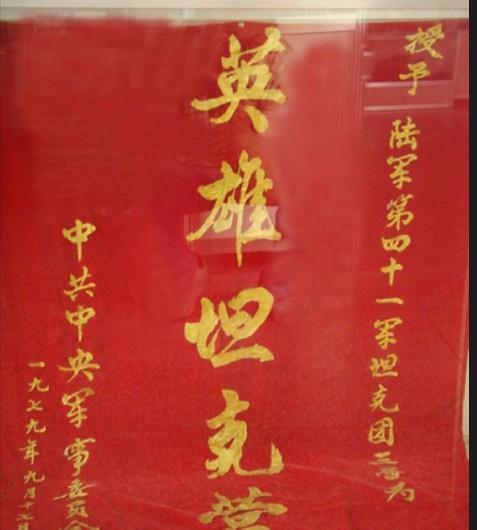 授予
陆军第四十一军坦克团三营为
英雄坦克营
中共中央军事委员会
一九七九年九月十七